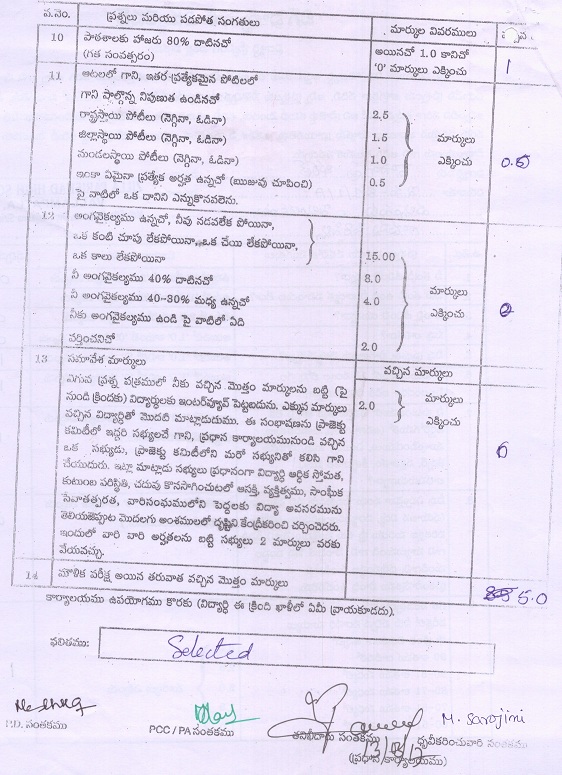 ప.నెం. ప్రశ్నలు మరియు పడపోత సంగతులు మార్కుల వివరములు
10 పాఠశాలకు హాజరు 80% దాటినచో అయినచో 1.0 కానిచో 1
(గత సంవత్సరం) '0' మార్కులు ఎక్కించు
11 ఆటలలో గాని, ఇతర ప్రత్యేకమైన పోటీలలో
గాని పాల్గొన్న నిపుణత ఉండినచో
రాష్ట్రస్థాయి పోటీలు (నెగ్గినా, ఓడినా) 2.5
జిల్లాస్థాయి పోటీలు (నెగ్గినా, ఓడినా) 1.5 మార్కులు
మండలస్థాయి పోటీలు (నెగ్గినా, ఓడినా) 1.0 ఎక్కించు 0.5
ఇంకా ఏమైనా ప్రత్యేక అర్హత ఉన్నచో (ఋజువు చూపించి) 0.5
పై వాటిలో ఒక దానిని ఎన్నుకొనవలెను.
12 అంగవైకల్యము ఉన్నచో, నీవు నడవలేక పోయినా,
ఒక కంటి చూపు లేకపోయినా, ఒక చేయి లేకపోయినా,
ఒక కాలు లేకపోయినా 15.00
నీ అంగవైకల్యము 40% దాటినచో 8.0 మార్కులు
నీ అంగవైకల్యము 40-30% మధ్య ఉన్నచో 4.0 ఎక్కించు
నీకు అంగవైకల్యము ఉండి పై వాటిలో ఏది
వర్తించనిచో 2.0
13 సమావేశ మార్కులు వచ్చిన మార్కులు
ఎగువ ప్రశ్న పత్రములో నీకు వచ్చిన మొత్తం మార్కులను బట్టి (పై
నుండి క్రిందకు) విద్యార్థులకు ఇంటర్వ్యూవ్ పెట్టబడును. ఎక్కువ మార్కులు 2.0 మార్కులు
వచ్చిన విద్యార్థితో మొదట మాట్లాడుదుము. ఈ సంభాషణను ప్రాజెక్టు ఎక్కించు
కమిటీలో ఇద్దరి సభ్యులచే గాని, ప్రధాన కార్యాలయమునుండి వచ్చిన
ఒక సభ్యుడు, ప్రాజెక్టు కమిటీలోని మరో సభ్యునితో కలిసి గాని
చేయుదురు. ఇట్లా మాట్లాడు సభ్యులు ప్రధానంగా విద్యార్థి ఆర్థిక స్తోమత,
కుటుంబ పరిస్థితి, చదువు కొనసాగించుటలో ఆసక్తి, వ్యక్తిత్వము, సాంఘిక
సేవాతత్పరత, వారిసంఘములోని పెద్దలకు విద్యా అవసరమును
తెలియజెప్పుట మొదలగు అంశములలో దృష్టిని కేంద్రీకరించి చర్చించెదరు.
ఇందులో వారి వారి అర్హతలను బట్టి సభ్యులు 2 మార్కులు వరకు
వేయవచ్చు.
14 మౌఖిక పరీక్ష అయిన తరువాత వచ్చిన మొత్తం మార్కులు 5.0
కార్యాలయము ఉపయోగము కొరకు (విద్యార్థి ఈ క్రింది ఖాళీలో ఏమీ వ్రాయకూడదు).
ఫలితము: Selected
M. Sarojini
P.D. సంతకము PCC / PA సంతకము తనిఖీదారు సంతకము ధృవీకరించువారి సంతకము
(ప్రధాన కార్యాలయము)